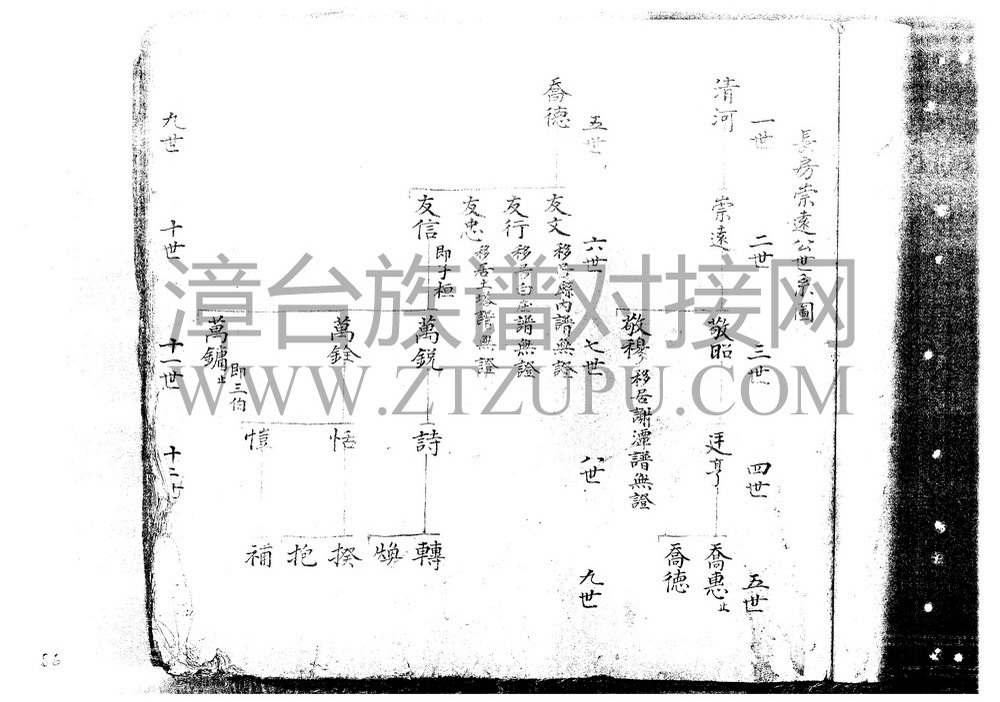 長房崇遠公世宗圖
一世
二世
三世
四世
五世
清河
崇遠
敬昭
廷亨
喬惠止
敬穆 移居謝潭譜無證
喬德
五世
六世
七世
八世
九世
喬德
友文 移居縣內譜無證
友行 移居白 譜無證
友忠 移居土 譜無證
友信 即子桓
萬銳
詩
轉
煥
萬銓
恬
揆
抱
萬鏞止 即三伯
愷
補
九世
十世
十一世
十二
漳台族谱对接网
WWW.ZTZUPU.COM
56